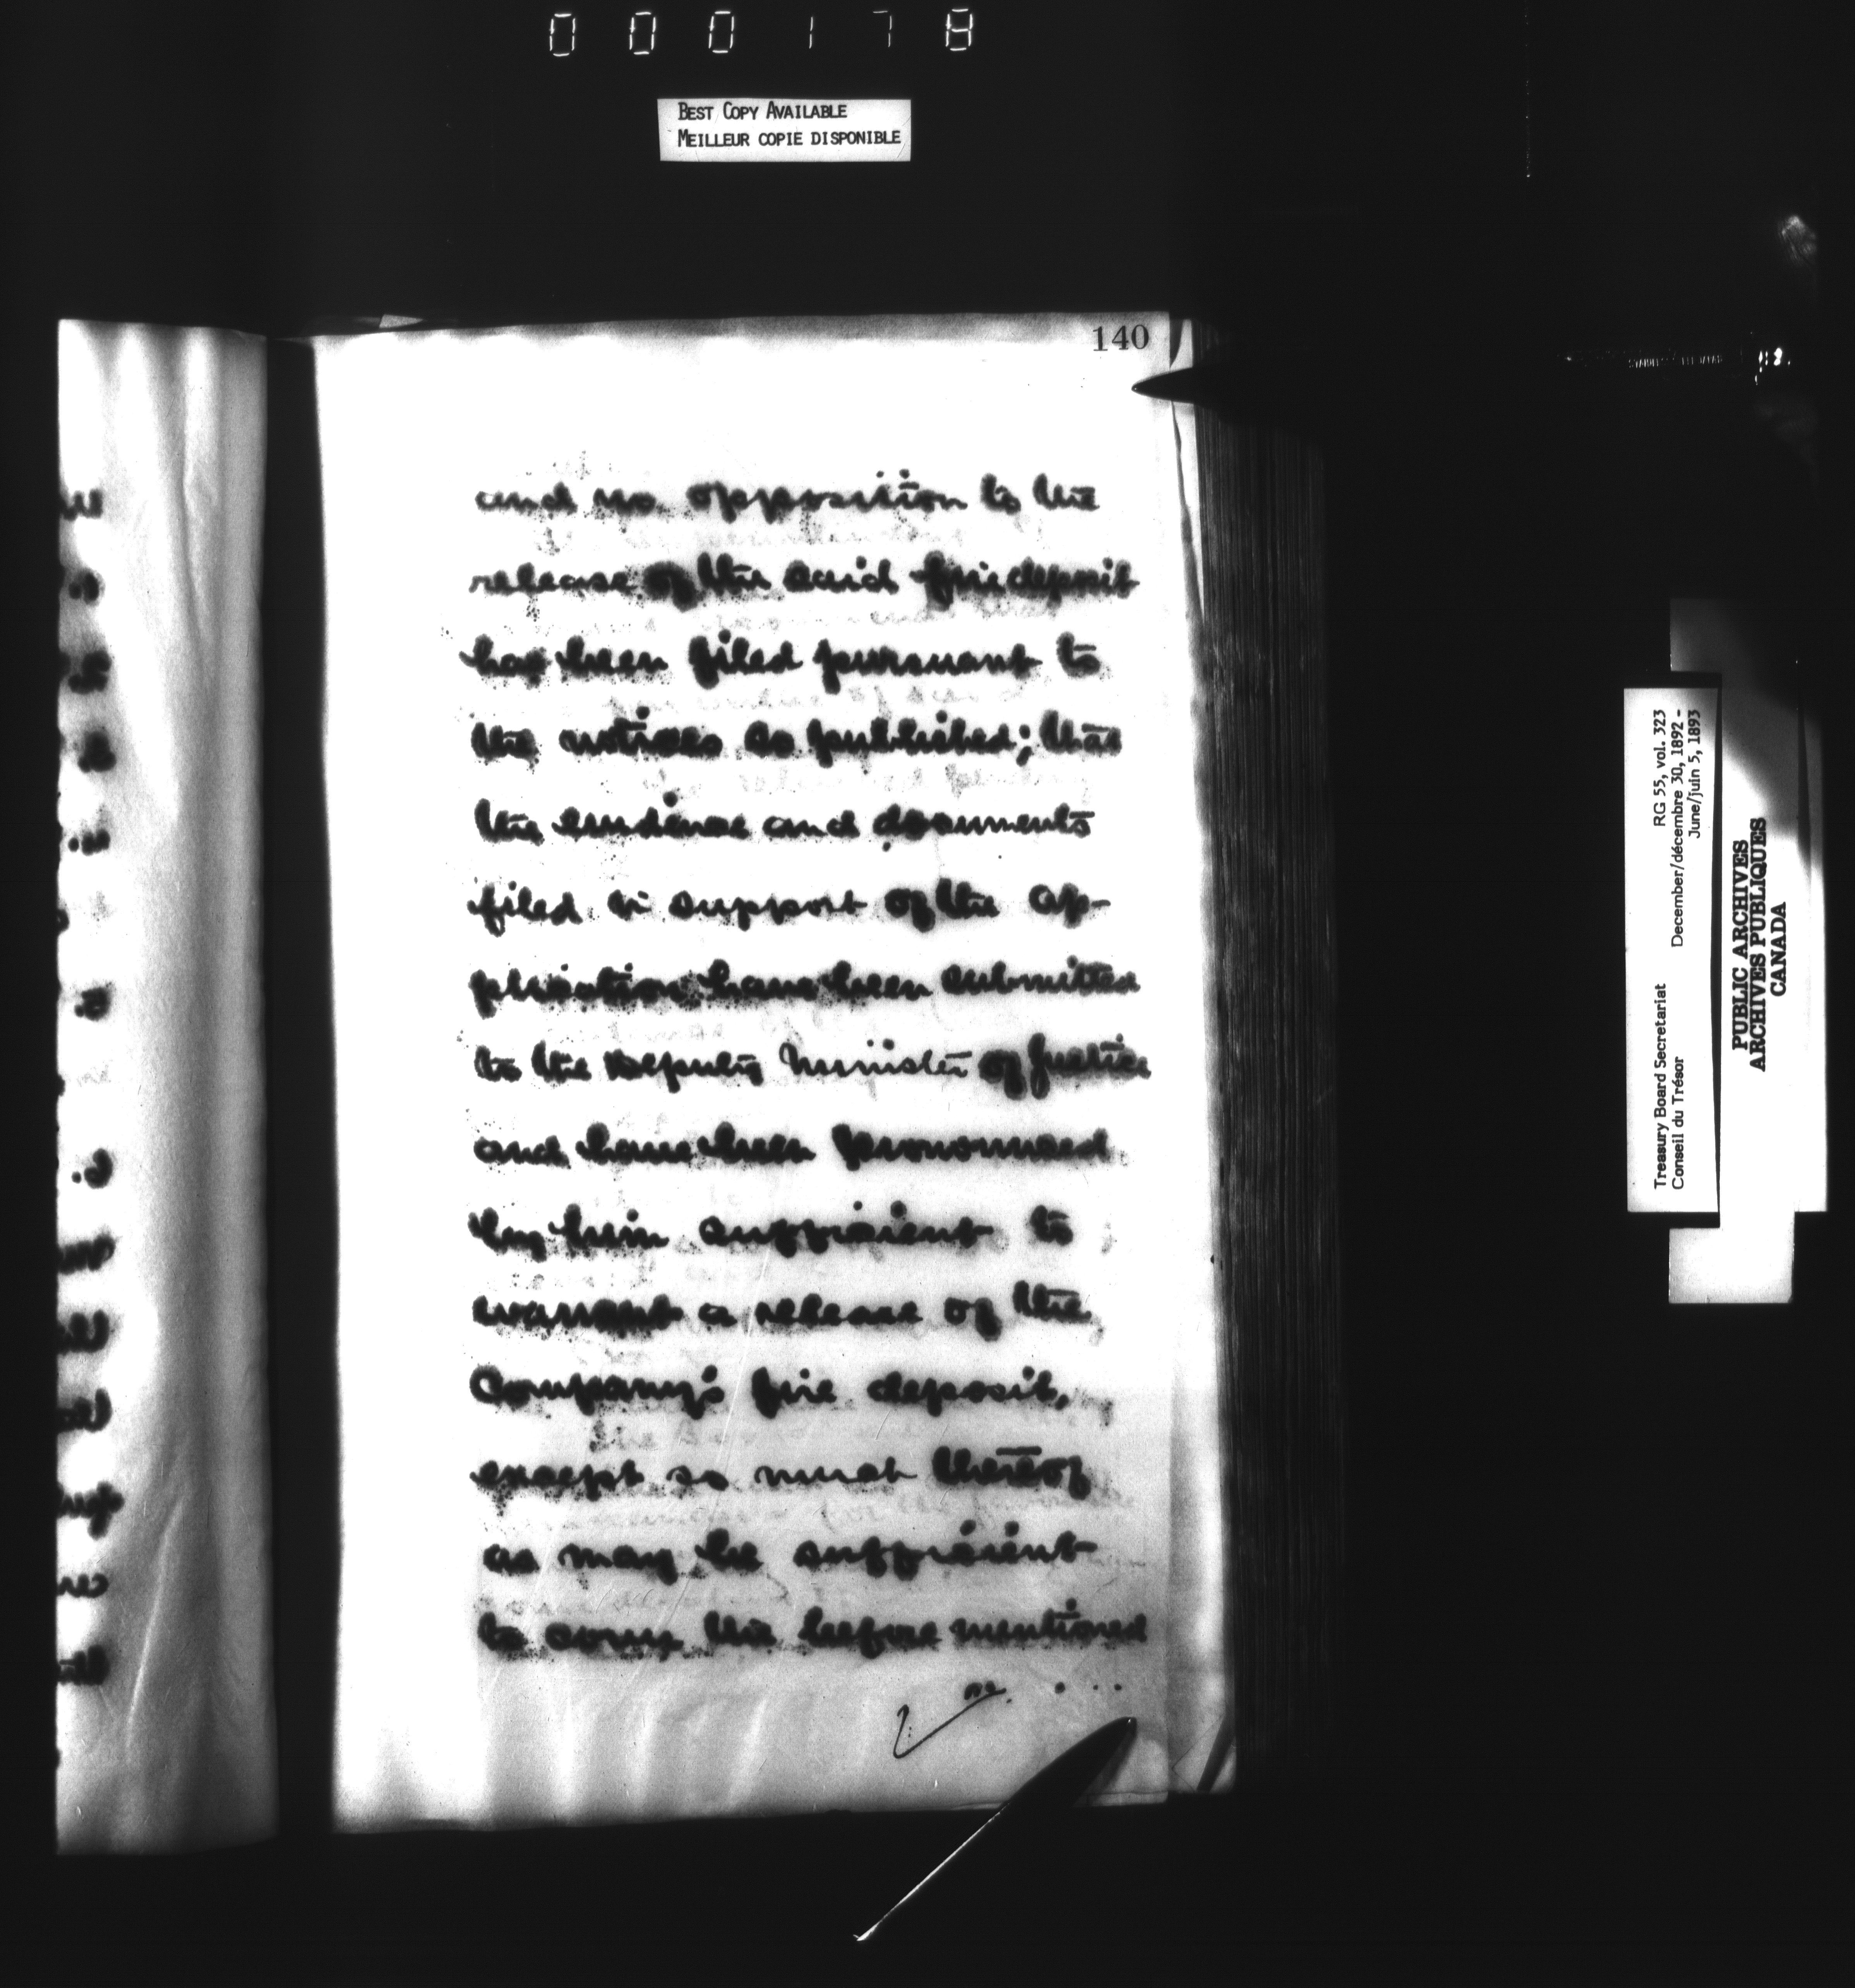 000178
BEST COPY AVAILABLE
MEILLEUR COPIE DISPONIBLE
140
and no opposition to the
release of the said fire deposit
has been filed pursuant to
the notices so published; that
the evidence and documents
filed in support of the ap-
plication have been submitted
to the Deputy Minister of Justice
and have been pronounced
by him sufficient to
warrant a release of the
Company's fire deposit,
except so much thereof
as may be sufficient
to cover the before mentioned
Treasury Board Secretariat RG 55, vol. 323
Conseil du Trésor December/décembre 30, 1892 -
June/juin 5, 1893
PUBLIC ARCHIVES
ARCHIVES PUBLIQUES
CANADA